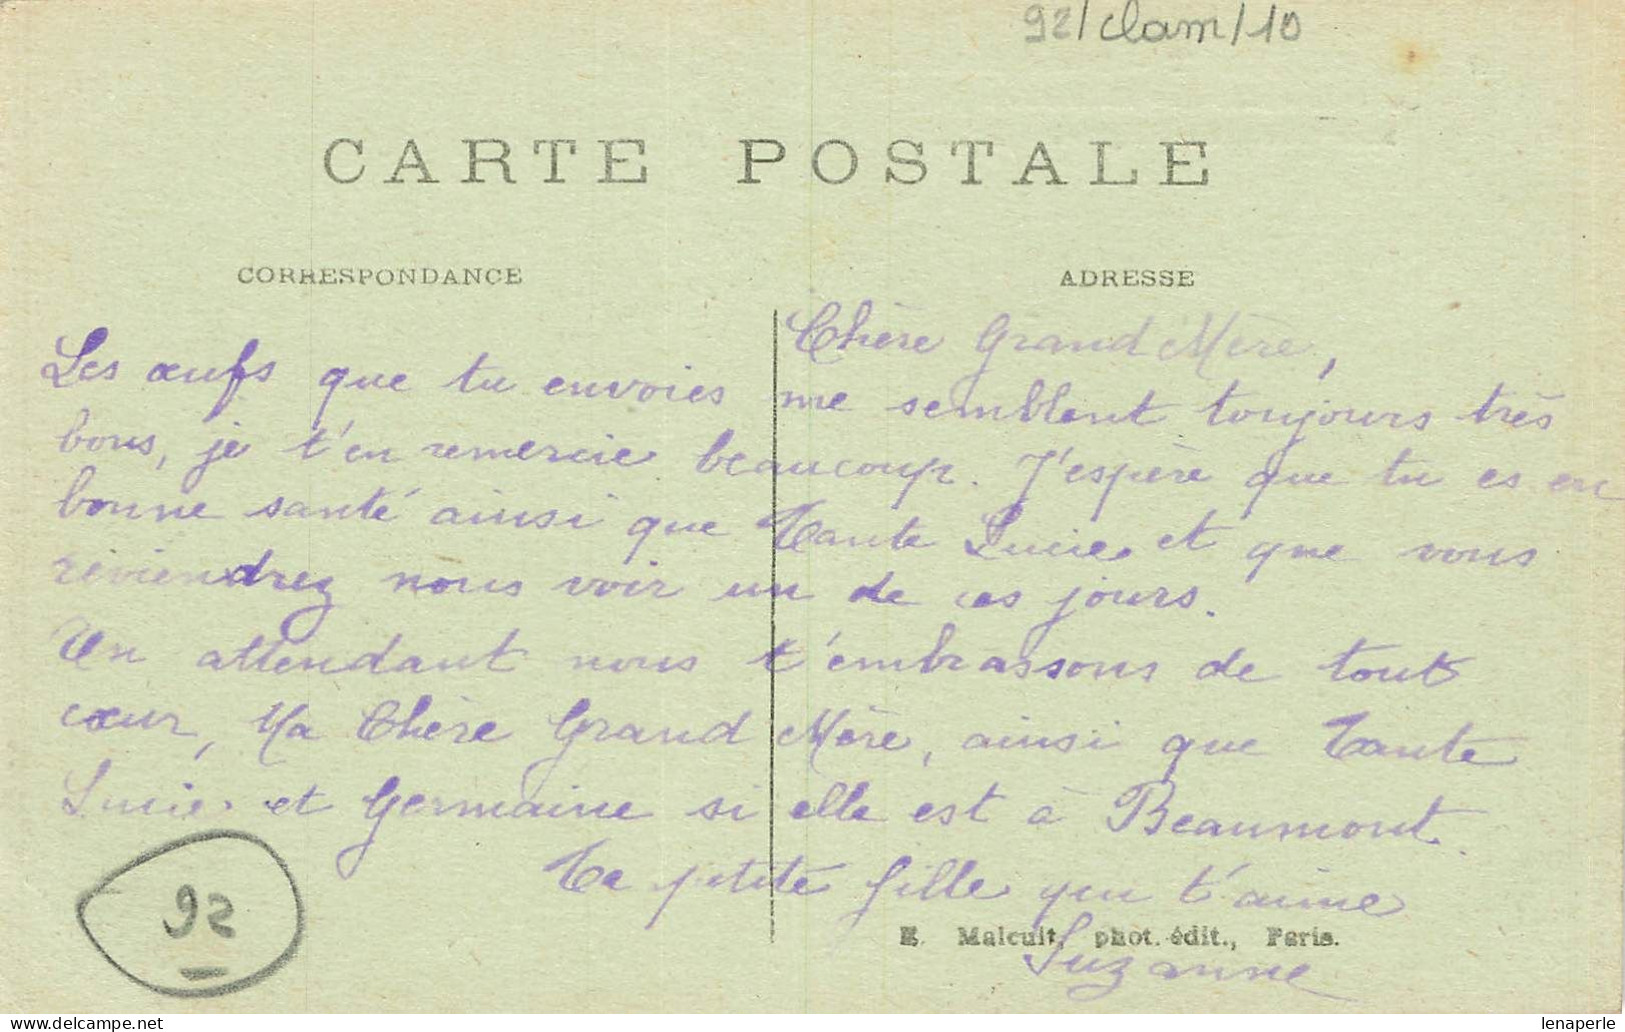 92/clam/10
CARTE POSTALE
CORRESPONDANCE
ADRESSE
Chère Grand Mère,
Les œufs que tu envoies me semblent toujours très
bons, je t'en remercie beaucoup. J'espère que tu es en
bonne santé ainsi que Tante Lucie et que vous
reviendrez nous voir un de ces jours.
En attendant nous t'embrassons de tout
cœur, Ma Chère Grand Mère, ainsi que Tante
Lucie et Germaine si elle est à Beaumont.
Ta petite fille qui t'aime
Suzanne
92
E. Malcuit, phot. édit., Paris.
lenaperle